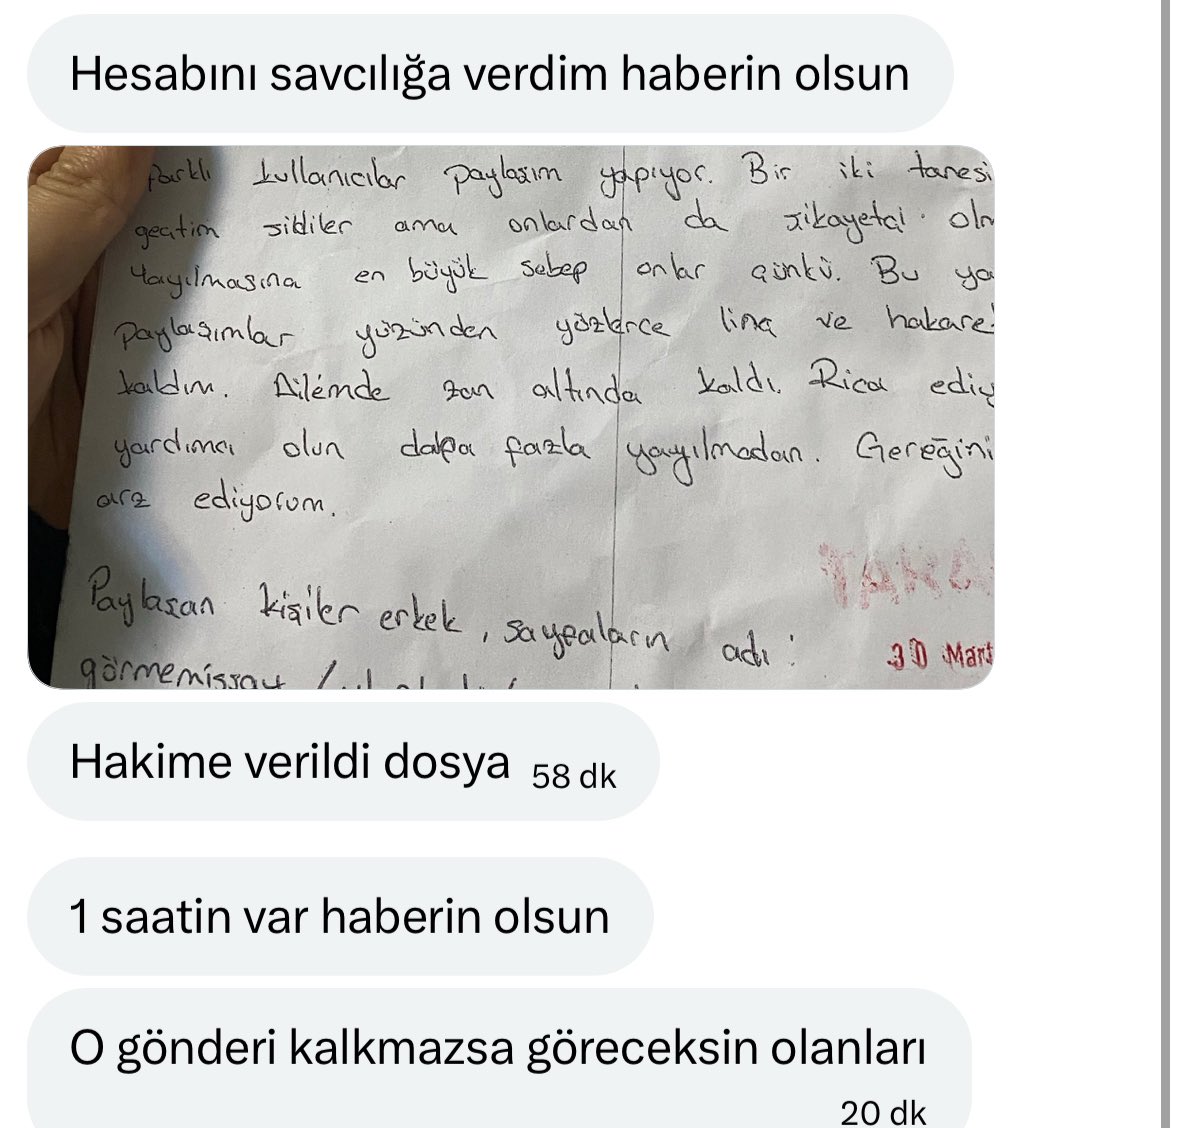 Hesabını savcılığa verdim haberin olsun
farklı kullanıcılar paylaşım yapıyor. Bir iki tanesi
geçtim sildiler ama onlardan da şikayetçi
Yayılmasına en büyük sebep onlar çünkü. Bu
Paylaşımlar yüzünden yüzlerce linç ve
kaldım. Ailemde zan altında kaldı. Rica
yardımcı olun daha fazla yayılmadan. Gereğini
arz ediyorum.
Paylaşan kişiler erkek, sayfaların adı:
30 Mart
Hakime verildi dosya 58 dk
1 saatin var haberin olsun
O gönderi kalkmazsa göreceksin olanları
20 dk